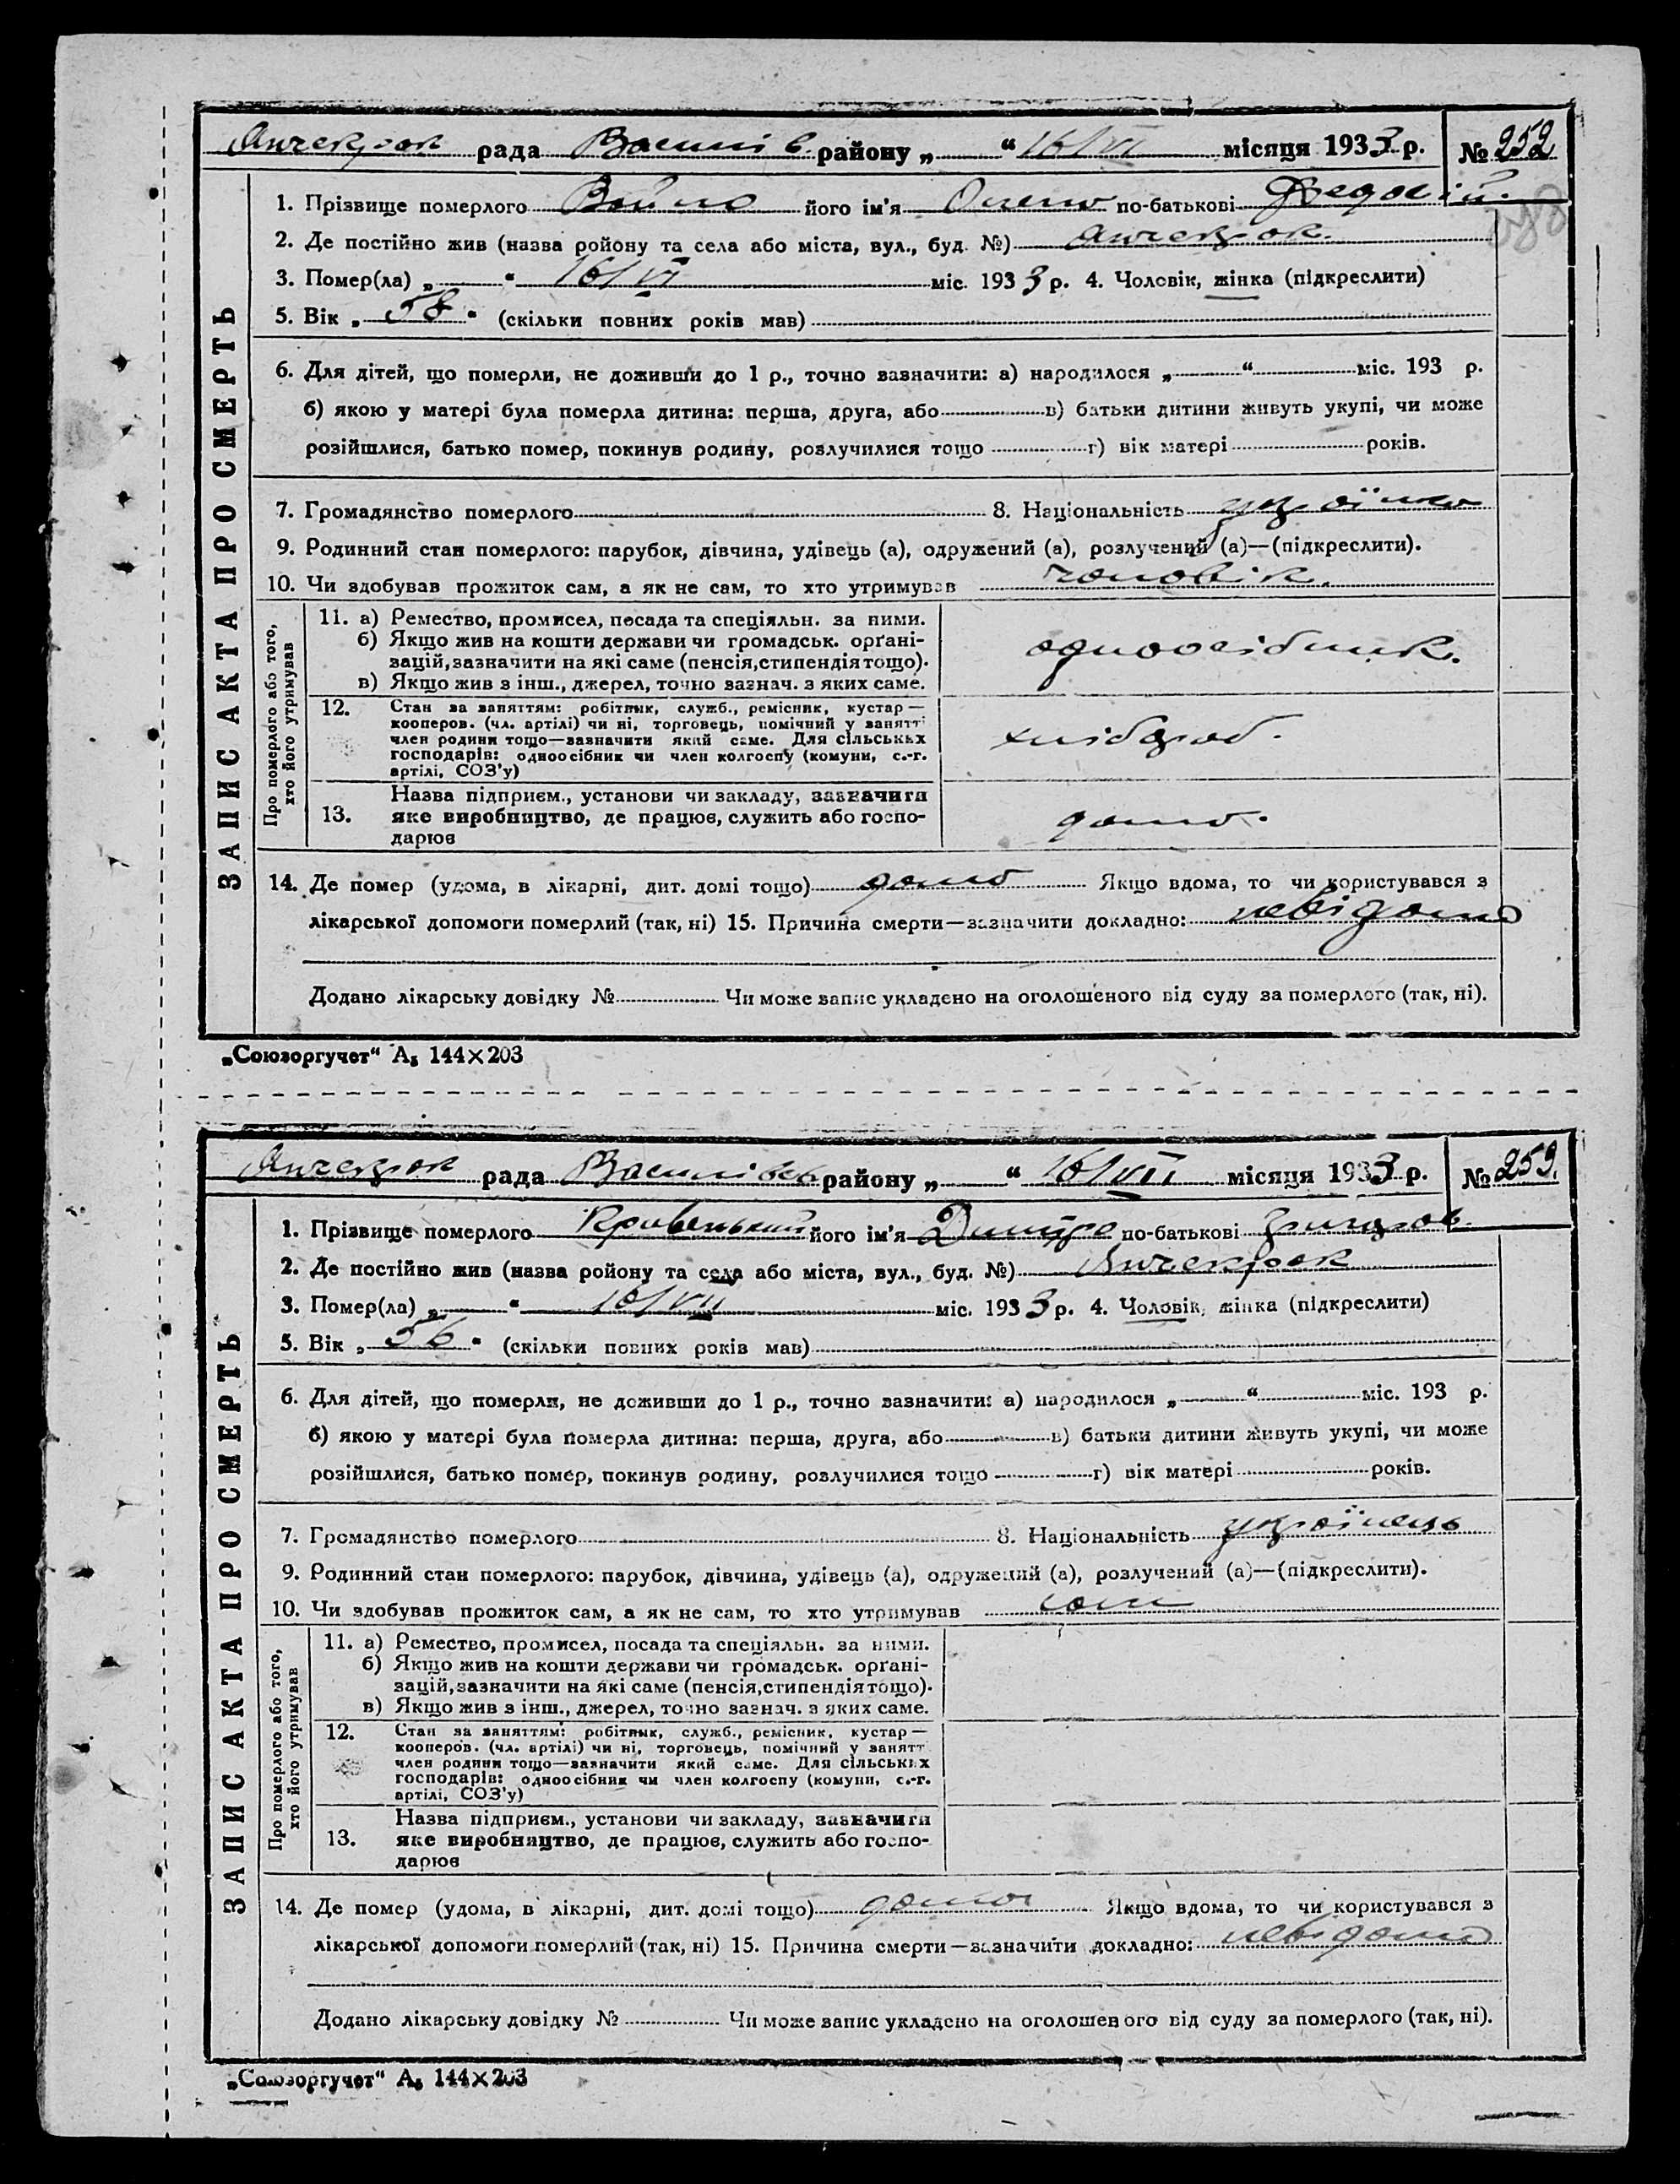 Анчекрак рада Василів. району „ “ 16/VII місяця 1933 р. № 252
1. Прізвище померлого його ім'я по-батькові
2. Де постійно жив (назва ройону та села або міста, вул., буд. №) Анчекрак.
3. Помер(ла) „ “ 16/VI міс. 1933 р. 4. Чоловік, жінка (підкреслити)
5. Вік „ 58 “ (скільки повних років мав)
6. Для дітей, що померли, не доживши до 1 р., точно зазначити: а) народилося „ “ міс. 193 р.
б) якою у матері була померла дитина: перша, друга, або в) батьки дитини живуть укупі, чи може
розійшлися, батько помер, покинув родину, розлучилися тощо г) вік матері років.
7. Громадянство померлого 8. Національність українка
9. Родинний стан померлого: парубок, дівчина, удівець (а), одружений (а), розлучений (а)—(підкреслити).
10. Чи здобував прожиток сам, а як не сам, то хто утримував чоловік.
ЗАПИС АКТА ПРО СМЕРТЬ
Про померлого або того,
хто його утримував
11. а) Ремество, промисел, посада та спеціяльн. за ними.
б) Якщо жив на кошти держави чи громадськ. орґані-
зацій, зазначити на які саме (пенсія, стипендія тощо).
в) Якщо жив з інш., джерел, точно зазнач. з яких саме.
одноосібник.
12. Стан за заняттям: робітник, служб., ремісник, кустар —
кооперов. (чл. артілі) чи ні, торговець, помічний у занятті
член родини тощо—зазначити який саме. Для сільських
господарів: одноосібник чи член колгоспу (комуни, с.-г.
артілі, СОЗ'у)
хлібороб.
13. Назва підприєм., установи чи закладу, зазначити
яке виробництво, де працює, служить або госпо-
дарює
дома.
14. Де помер (удома, в лікарні, дит. домі тощо) дома Якщо вдома, то чи користувався з
лікарської допомоги померлий (так, ні) 15. Причина смерти—зазначити докладно: невідомо
Додано лікарську довідку № Чи може запис укладено на оголошеного від суду за померлого (так, ні).
„Союзоргучет“ А5 144×203
Анчекрак рада Василівсь району „ “ 16/VII місяця 1933 р. № 259.
1. Прізвище померлого Кривенький його ім'я Дмитро по-батькові Григоров.
2. Де постійно жив (назва ройону та села або міста, вул., буд. №) Анчекрак
3. Помер(ла) „ “ 16/VII міс. 1933 р. 4. Чоловік, жінка (підкреслити)
5. Вік „ 56 “ (скільки повних років мав)
6. Для дітей, що померли, не доживши до 1 р., точно зазначити: а) народилося „ “ міс. 193 р.
б) якою у матері була померла дитина: перша, друга, або в) батьки дитини живуть укупі, чи може
розійшлися, батько помер, покинув родину, розлучилися тощо г) вік матері років.
7. Громадянство померлого 8. Національність українець
9. Родинний стан померлого: парубок, дівчина, удівець (а), одружений (а), розлучений (а)—(підкреслити).
10. Чи здобував прожиток сам, а як не сам, то хто утримував сам
ЗАПИС АКТА ПРО СМЕРТЬ
Про померлого або того,
хто його утримував
11. а) Ремество, промисел, посада та спеціяльн. за ними.
б) Якщо жив на кошти держави чи громадськ. орґані-
зацій, зазначити на які саме (пенсія, стипендія тощо).
в) Якщо жив з інш., джерел, точно зазнач. з яких саме.
12. Стан за заняттям: робітник, служб., ремісник, кустар —
кооперов. (чл. артілі) чи ні, торговець, помічний у занятт
член родини тощо—зазначити який саме. Для сільських
господарів: одноосібник чи член колгоспу (комуни, с.-г.
артілі, СОЗ'у)
13. Назва підприєм., установи чи закладу, зазначити
яке виробництво, де працює, служить або госпо-
дарює
14. Де помер (удома, в лікарні, дит. домі тощо) дома Якщо вдома, то чи користувався з
лікарської допомоги померлий (так, ні) 15. Причина смерти—зазначити докладно: невідомо
Додано лікарську довідку № Чи може запис укладено на оголошеного від суду за померлого (так, ні).
„Союзоргучет“ А5 144×203